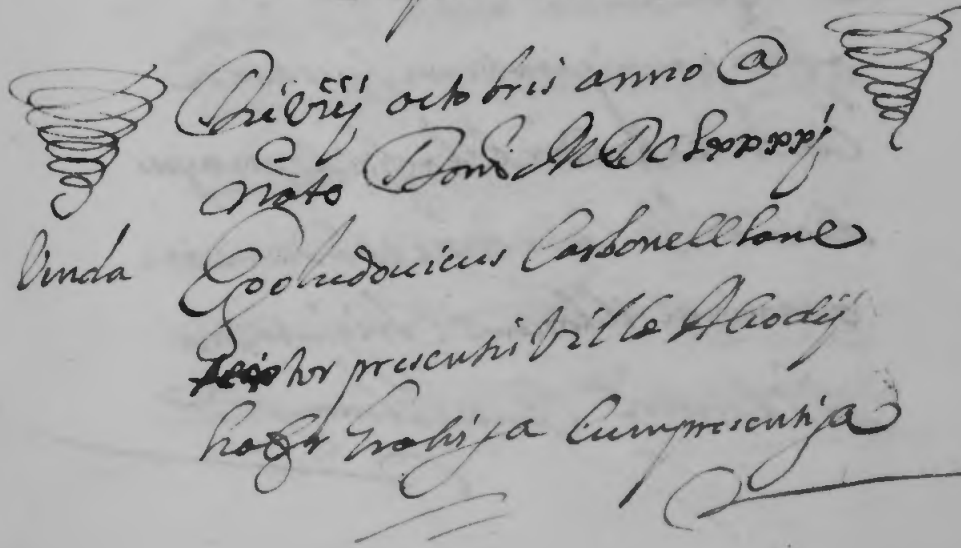 Die viij octobris anno a
Nate Domi MDClxxxxj
Venda Ego ludouicus Carbonell lane
tor presentis ville Alcodij
hac cum presentia